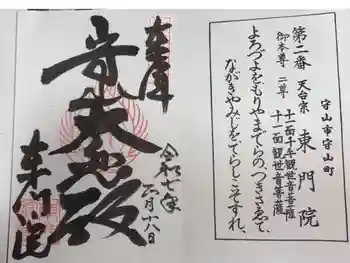 守山市守山町
第二番 天台宗 東門院
御本尊 二尊 十一面千手観世音菩薩
十一面観世音菩薩
よろづよをもりやまでらのつきさゑて、
ながきやみじをてらしこそすれ、
奉拝
令和七年
六月十八日
東門院